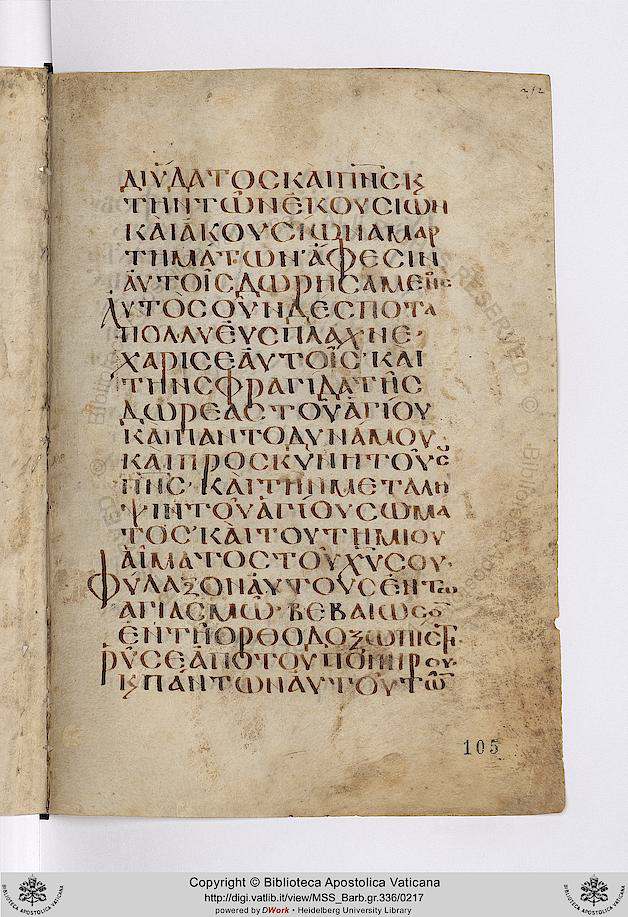 212
ΔΙ ὝΔΑΤΟΣ ΚΑῚ Π͞Ν͞Σ Κ͵
ΤῊΝ ΤῶΝ ἙΚΟΥΣΊΩΝ
ΚΑῚ ἈΚΟΥΣΊΩΝ ἉΜΑΡ
ΤΗΜΆΤΩΝ ἌΦΕΣΙΝ
ΑΥΤΟΙΣ ΔΩΡΗΣΆΜΕΝΕ
ΑΥΤΟΣ ΟΥΝ ΔΕΣΠΟΤΑ
ΠΟΛΛΥΕΥΣΠΛΑΧΝΕ·
ΧΑΡΙΣΕ ΑΥΤΟΙΣ· ΚΑΙ
ΤΗΝ ΣΦΡΑΓΙΔΑ ΤΗΣ
ΔΩΡΕΑΣ ΤΟΥ ΑΓΙΟΥ
ΚΑΙ ΠΑΝΤΟΔΥΝΑΜΟΥ
ΚΑΙ ΠΡΟΣΚΥΝΗΤΟΥ ΣΟΥ
Π͞Ν͞Σ· ΚΑΙ ΤΗΝ ΜΕΤΑΛΗ
ΨΙΝ ΤΟΥ ΑΓΙΟΥ ΣΩΜΑ
ΤΟΣ· ΚΑΙ ΤΟΥ ΤΗΜΙΟΥ
ΑΙΜΑΤΟΣ ΤΟΥ Χ͞Υ ΣΟΥ·
ΦΥΛΑΞΟΝ ΑΥΤΟΥΣ ΕΝ ΤΩ
ΑΓΙΑΣΜΩ· ΒΕΒΑΙΩΣΟ͞
ΕΝ ΤΗ ΟΡΘΟΔΟΞΩ ΠΙΣΤΙ·
ΡΥΣΕ ΑΠΟ ΤΟΥ ΠΟΝΗΡΟΥ·
Κ͵ ΠΑΝΤΩΝ ΑΥΤΟΥ ΤΩ͞
105
Copyright © Biblioteca Apostolica Vaticana
http://digi.vatlib.it/view/MSS_Barb.gr.336/0217
powered by DWork • Heidelberg University Library